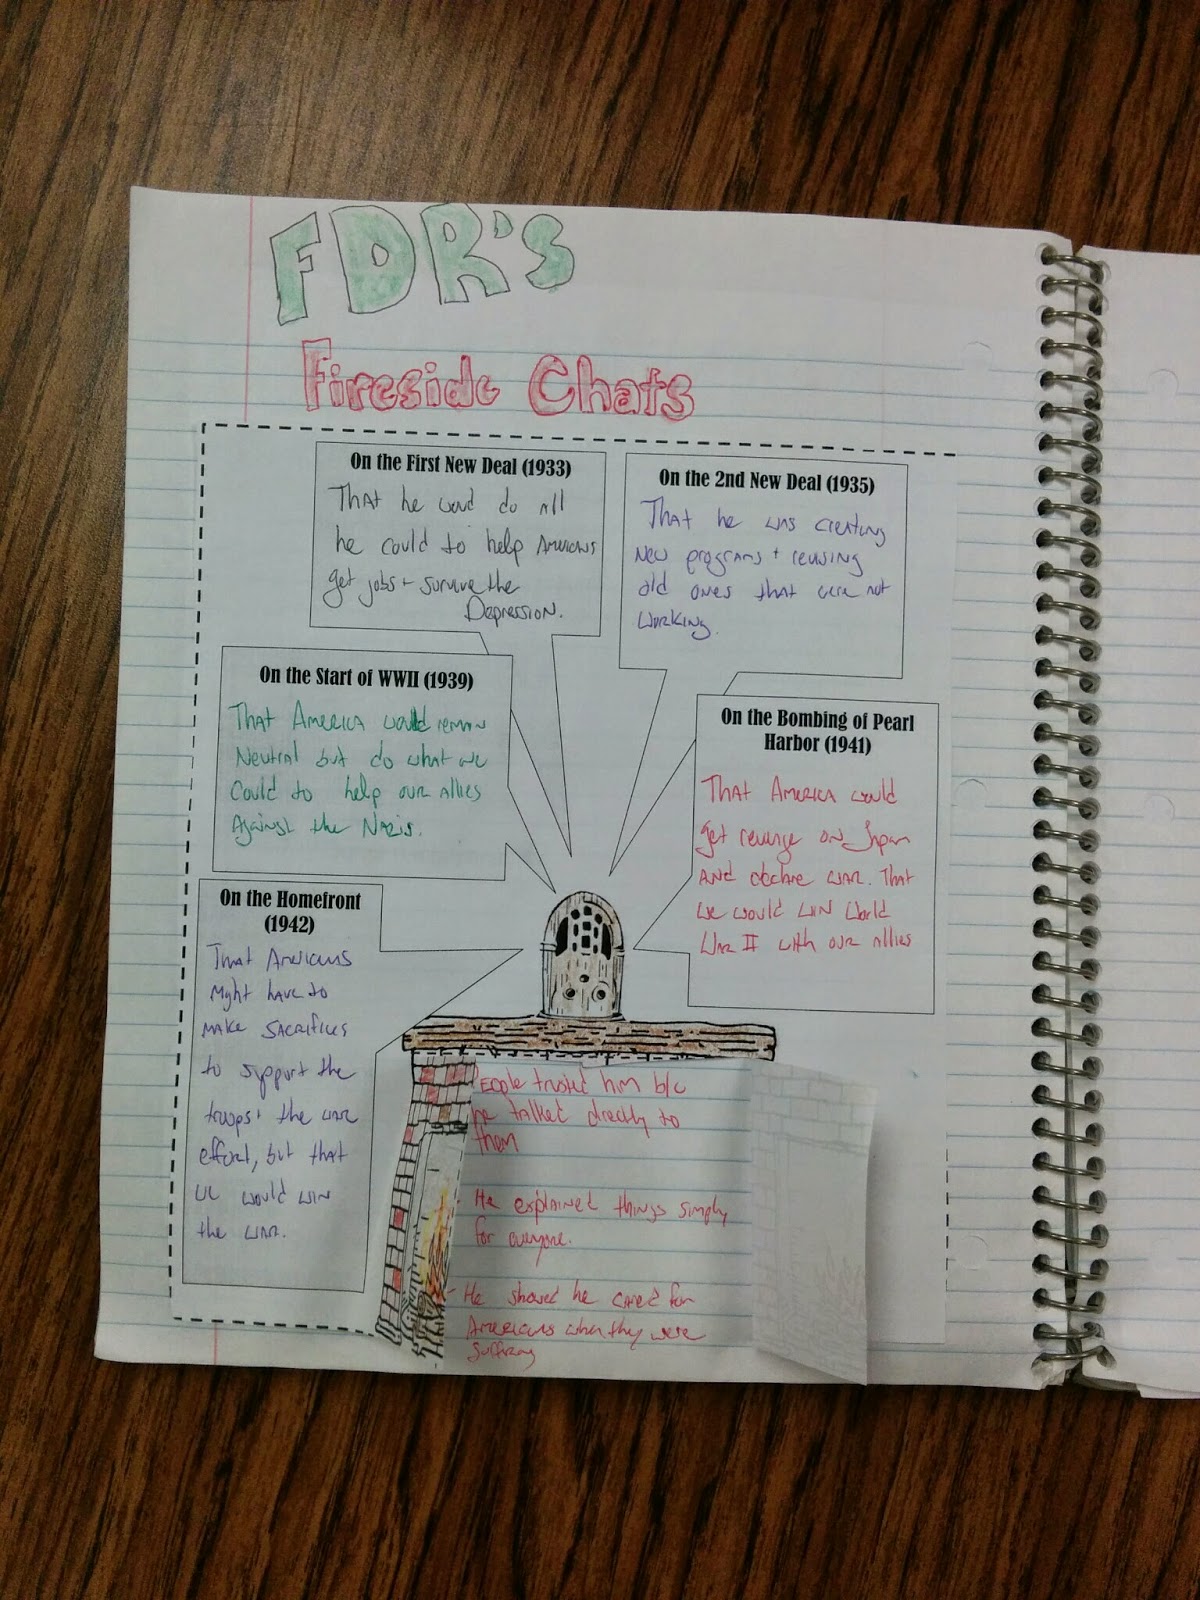 FDR's
Fireside Chats
On the First New Deal (1933)
That he woud do all
he could to help Americans
get jobs + survive the
Depression.
On the 2nd New Deal (1935)
That he was creating
new programs + reusing
old ones that were not
working.
On the Start of WWII (1939)
That America would remain
Neutral but do what we
Could to help our allies
Against the Nazis.
On the Bombing of Pearl
Harbor (1941)
That America would
get revenge on Japan
And declare war. That
we would win World
War II with our allies
On the Homefront
(1942)
That Americans
might have to
make sacrifices
to support the
troops + the war
effort, but that
we would win
the war.
People trusted him b/c
he talked directly to
them
He explained things simply
for everyone.
He showed he cared for
Americans when they were
suffering